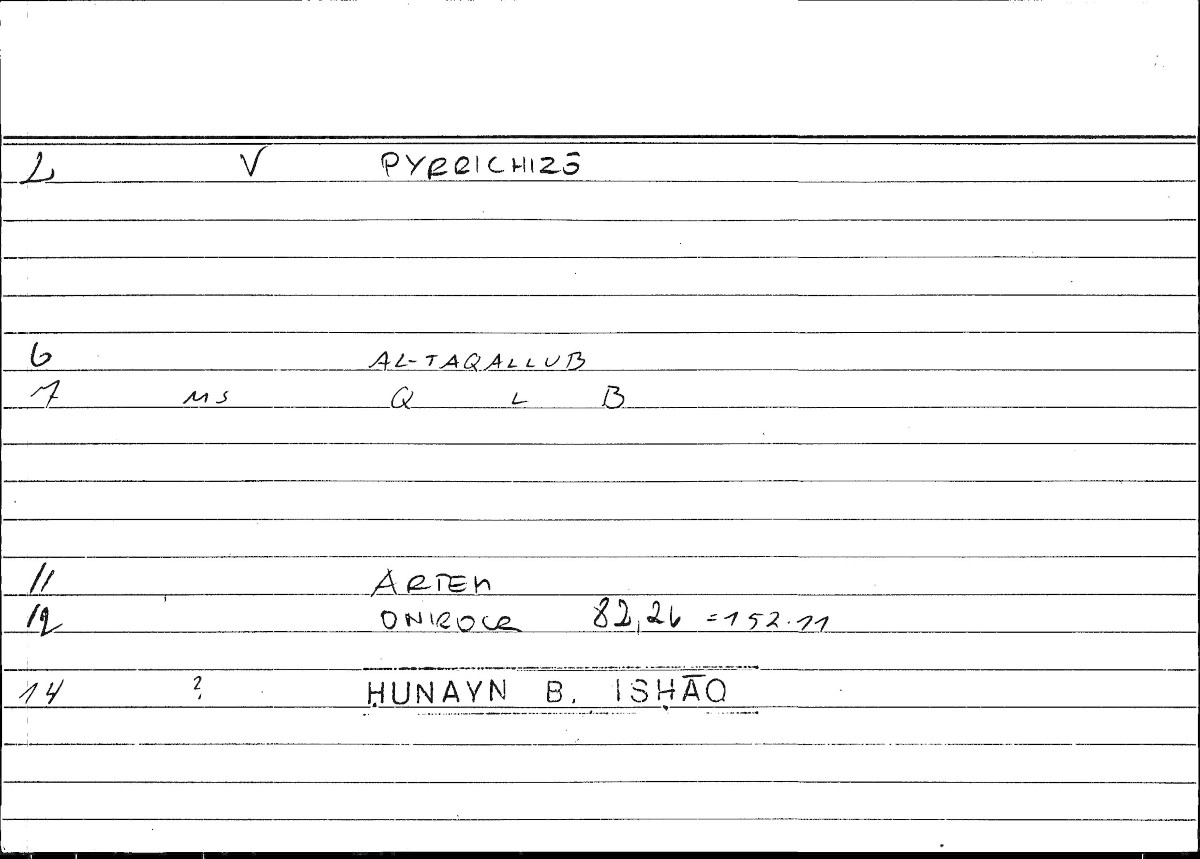 2 V PYRRICHIZŌ
6 AL-TAQALLUB
7 MS Q L B
11 ARTEM
12 ONIROCR 82,26 =152.11
14 ? ḤUNAYN B. ISḤĀQ